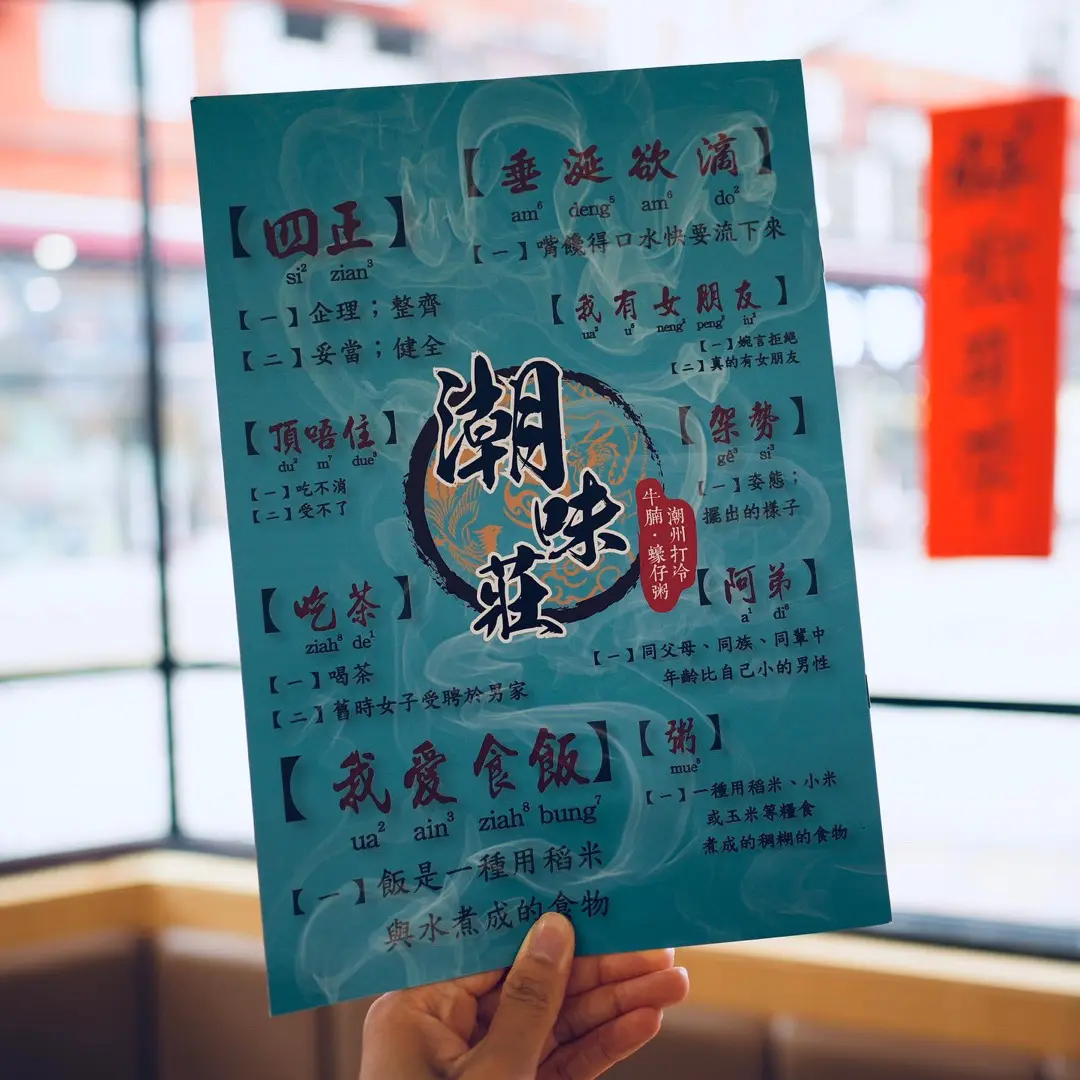 【垂涎欲滴】
am⁶ deng⁵ am⁶ do²
【一】嘴饞得口水快要流下來
【四正】
si² zian³
【一】企理；整齊
【二】妥當；健全
【我有女朋友】
ua² u⁶ neng² peng⁵ iu²
【一】婉言拒絕
【二】真的有女朋友
【頂唔住】
du² m⁷ due³
【一】吃不消
【二】受不了
潮味莊
潮州打冷
牛腩·蠔仔粥
【架勢】
gê³ si³
【一】姿態；
擺出的樣子
【吃茶】
ziah⁸ de¹
【一】喝茶
【二】舊時女子受聘於男家
【阿弟】
a¹ di⁶
【一】同父母、同族、同輩中
年齡比自己小的男性
【我愛食飯】
ua² ain³ ziah⁸ bung⁷
【一】飯是一種用稻米
與水煮成的食物
【粥】
mue⁸
【一】一種用稻米、小米
或玉米等糧食
煮成的稠糊的食物